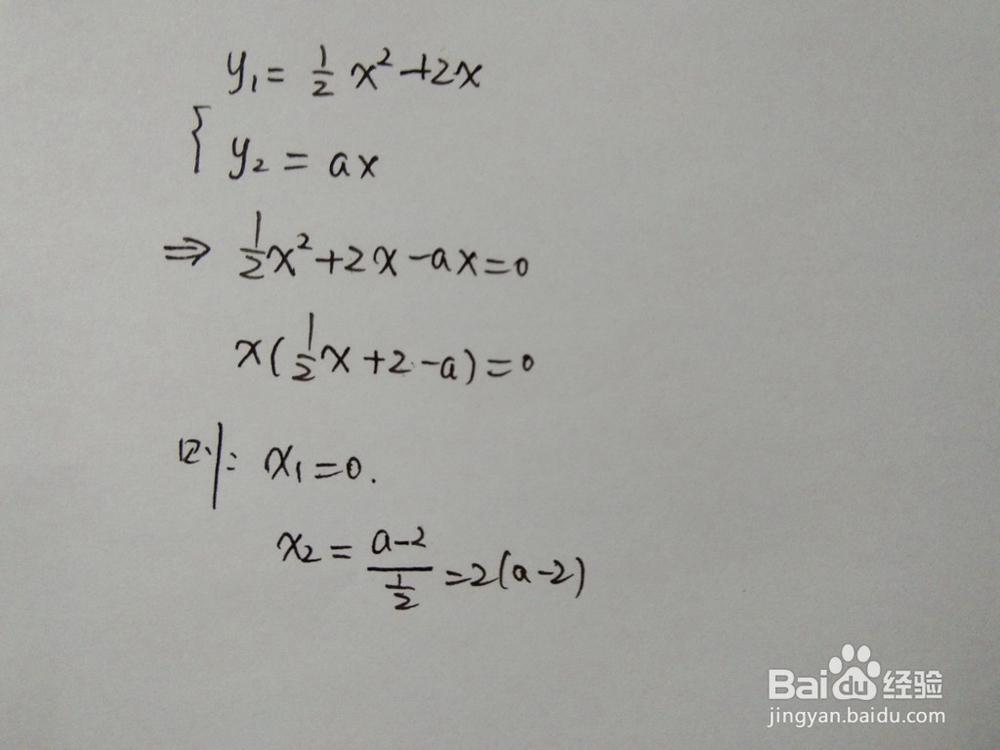 y₁ = 1/2 x² + 2x
{ y₂ = ax
⇒ 1/2 x² + 2x - ax = 0
x(1/2 x + 2 - a) = 0
则: x₁ = 0.
x₂ = (a-2)/(1/2) = 2(a-2)
Baidu 经验
jingyan.baidu.com